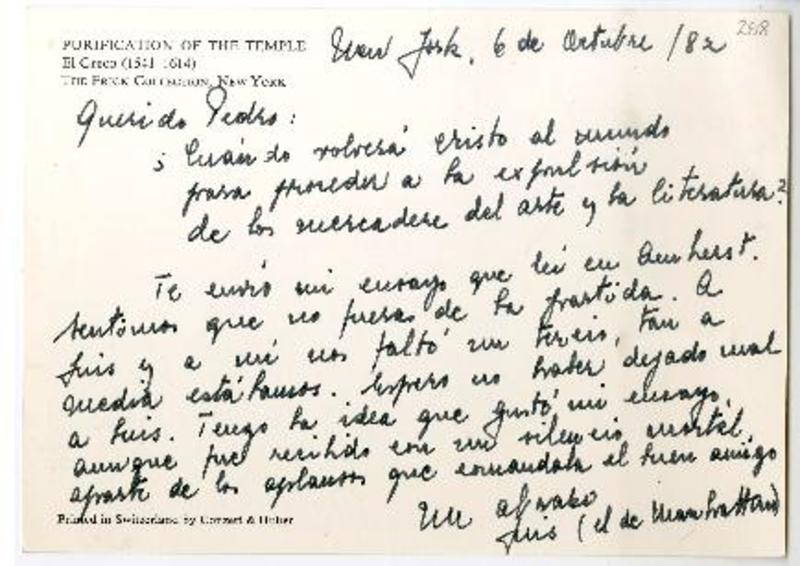 268
PURIFICATION OF THE TEMPLE
El Greco (1541-1614)
THE FRICK COLLECTION, NEW YORK
New York, 6 de Octubre /82
Querido Pedro:
¿Cuándo volverá Cristo al mundo
para proceder a la expulsión
de los mercadere del arte y la literatura?
Te envío mi ensayo que leí en Amherst.
Sentimos que no fueras de la partida. A
Luis y a mí nos faltó un tercio, tan a
media estábamos. Espero no haber dejado mal
a Luis. Tengo la idea que gustó mi ensayo,
aunque fue recibido con un silencio mortal,
aparte de los aplausos que comandaba el buen amigo
Un abrazo
Luis (el de Manhattan)
Printed in Switzerland by Conzett & Huber